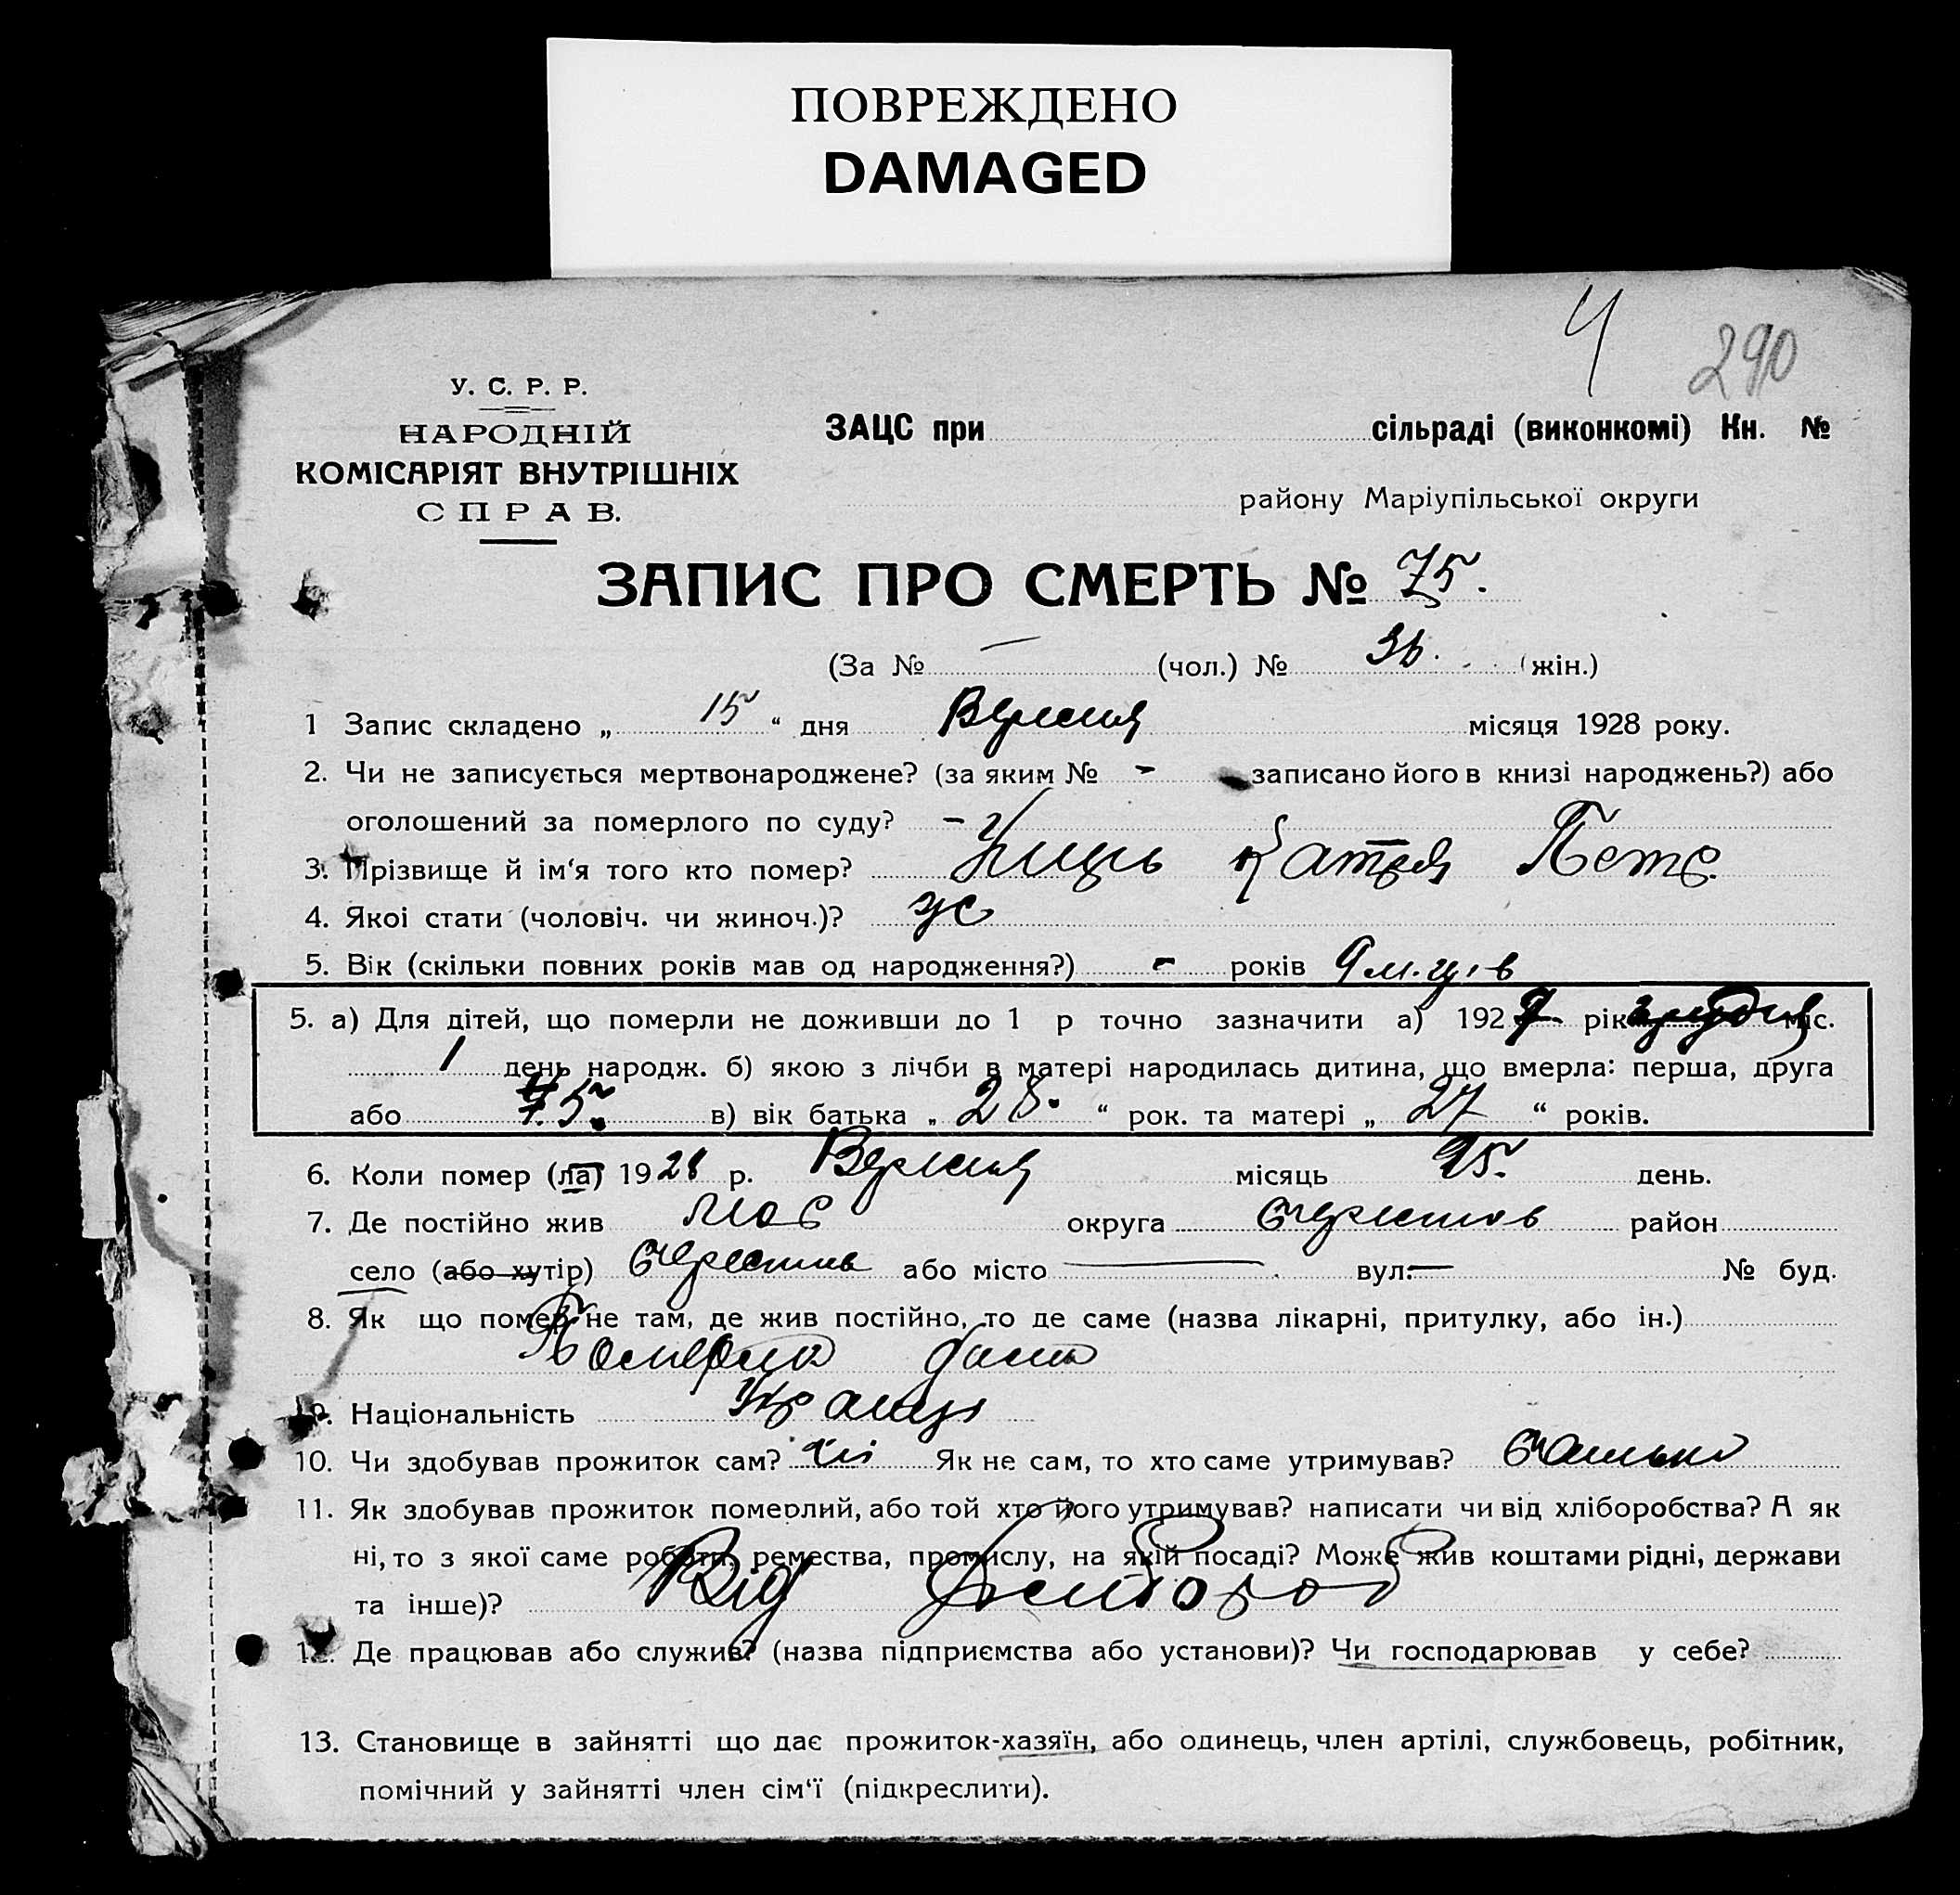 ПОВРЕЖДЕНО
DAMAGED
4 290
У. С. Р. Р.
НАРОДНІЙ
КОМІСАРІЯТ ВНУТРІШНІХ
СПРАВ.
ЗАЦС при сільраді (виконкомі) Кн. №
району Маріупільської округи
ЗАПИС ПРО СМЕРТЬ № 75.
(За № — (чол.) № 36. (жін.)
1 Запис складено „ 15 “ дня Вересня місяця 1928 року.
2. Чи не записується мертвонароджене? (за яким № - записано його в книзі народжень?) або
оголошений за померлого по суду? -
3. Прізвище й ім‘я того кто помер? Катря Петр
4. Якоі стати (чоловіч. чи жиноч.)? ж
5. Вік (скільки повних років мав од народження?) - років 9 м-ців
5. а) Для дітей, що померли не доживши до 1 р точно зазначити а) 1927 рік грудня міс.
1 день народж. б) якою з лічби в матері народилась дитина, що вмерла: перша, друга
або 5. в) вік батька „ 28. “ рок. та матері „ 27 “ років.
6. Коли помер (ла) 1928 р. Вересня місяць 15. день.
7. Де постійно жив округа район
село (або хутір) або місто — вул. — № буд.
8. Як що помер не там, де жив постійно, то де саме (назва лікарні, притулку, або ін.)
Померла дома
9. Національність Украінці
10. Чи здобував прожиток сам? ні Як не сам, то хто саме утримував? батько
11. Як здобував прожиток померлий, або той хто його утримував? написати чи від хліборобства? А як
ні, то з якої саме роботи, ремества, промислу, на якій посаді? Може жив коштами рідні, держави
та інше)? Від хлібороб
12. Де працював або служив? (назва підприємства або установи)? Чи господарював у себе?
13. Становище в зайнятті що дає прожиток-хазяїн, або одинець, член артілі, службовець, робітник,
помічний у зайнятті член сім‘ї (підкреслити).